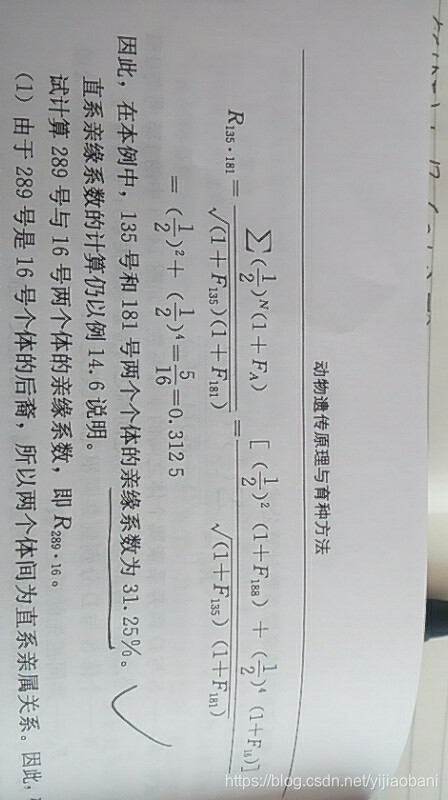 动物遗传原理与育种方法
R₁₃₅·₁₈₁ = ∑(1/2)ᴺ(1+F_A) / √(1+F₁₃₅)(1+F₁₈₁) = [(1/2)² (1+F₁₈₈) + (1/2)⁴ (1+F₁₆)] / √(1+F₁₃₅) (1+F₁₈₁)
= (1/2)² + (1/2)⁴ = 5/16 = 0.312 5
因此，在本例中，135 号和 181 号两个个体的亲缘系数为 31.25%。
直系亲缘系数的计算仍以例 14.6 说明。
试计算 289 号与 16 号两个体的亲缘系数，即 R₂₈₉·₁₆。
(1) 由于 289 号是 16 号个体的后裔，所以两个体间为直系亲属关系。因此，
https://blog.csdn.net/yijiaobani